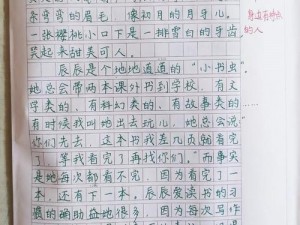 条弯弯的眉毛，像初月的月牙儿。
一张樱桃小口下是一排雪白的牙齿，
笑起来甜美可人。
辰辰是个地地道道的“小书虫”
她总会带两本课外书到学校，有文
学类的，有科幻类的，有故事类的……
有时候我叫她出去玩儿，她总会说：
“你们先去，这本书我差几页就看完
了，等我看完了再找你们。”而事实
是她每次都看不完，因为看完了一
本，还有下一本。辰辰爱读书的习
惯的确助益她很多，因为每次写作
的人